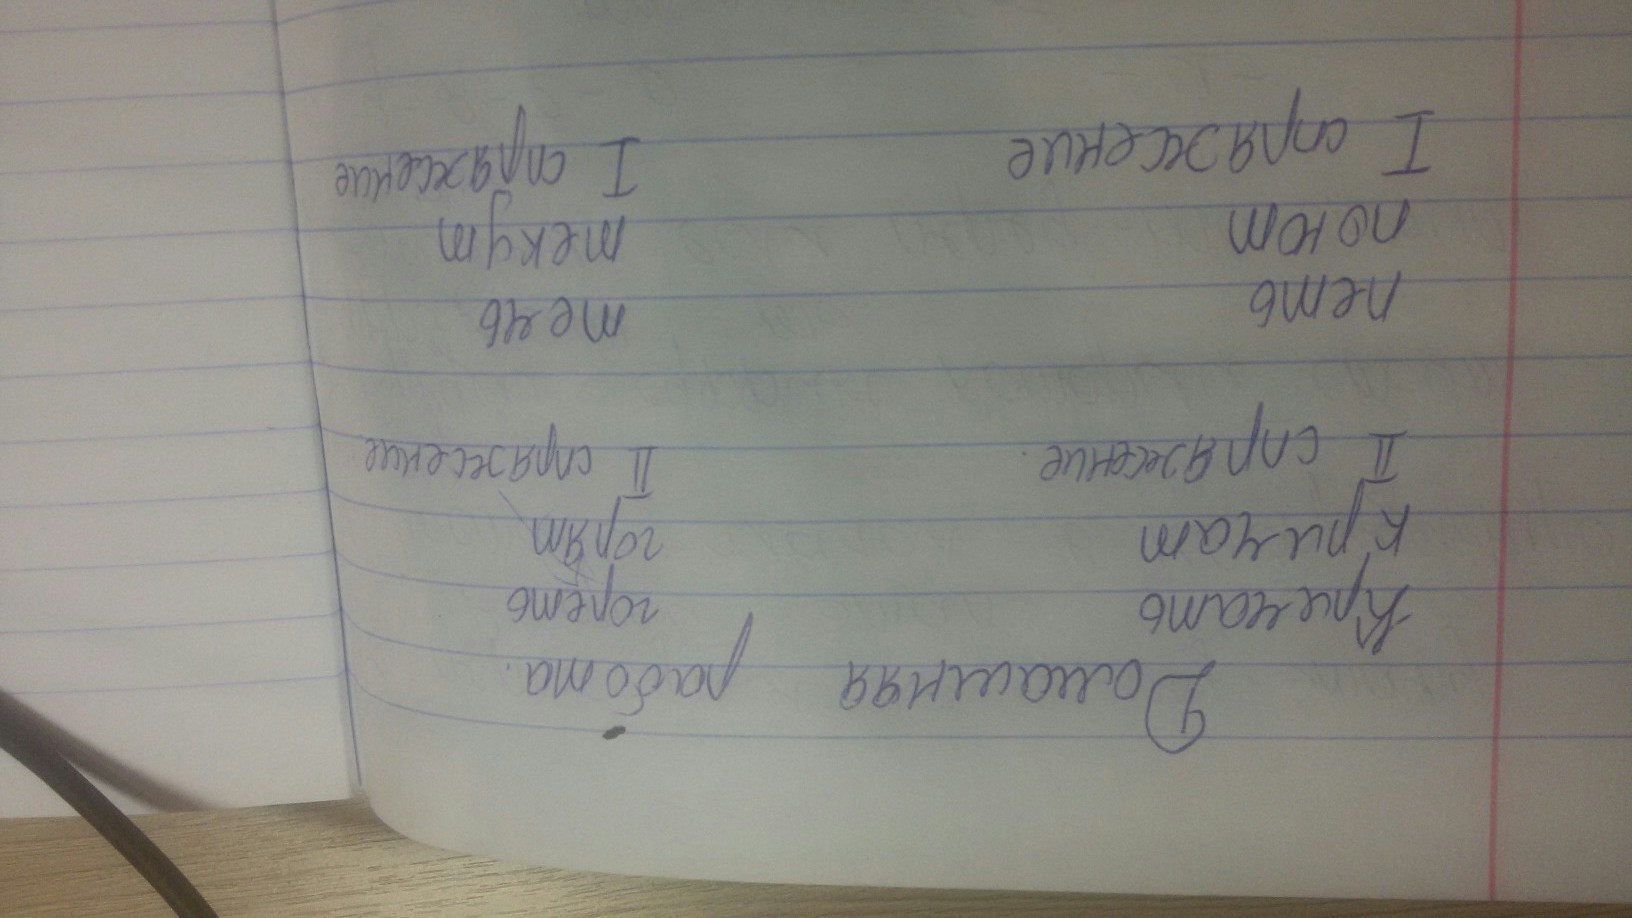 Домашняя работа.
Кричать гореть
кричат горят
II спряжение II спряжение
петь течь
поют текут
I спряжение I спряжение